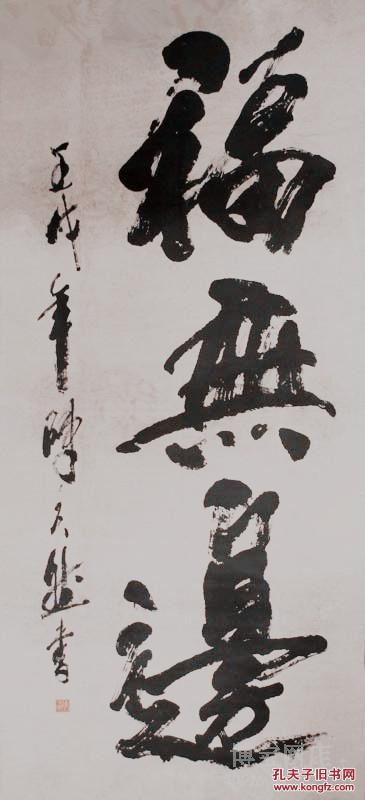 福無邊
壬戌年
書
孔夫子旧书网
www.kongfz.com